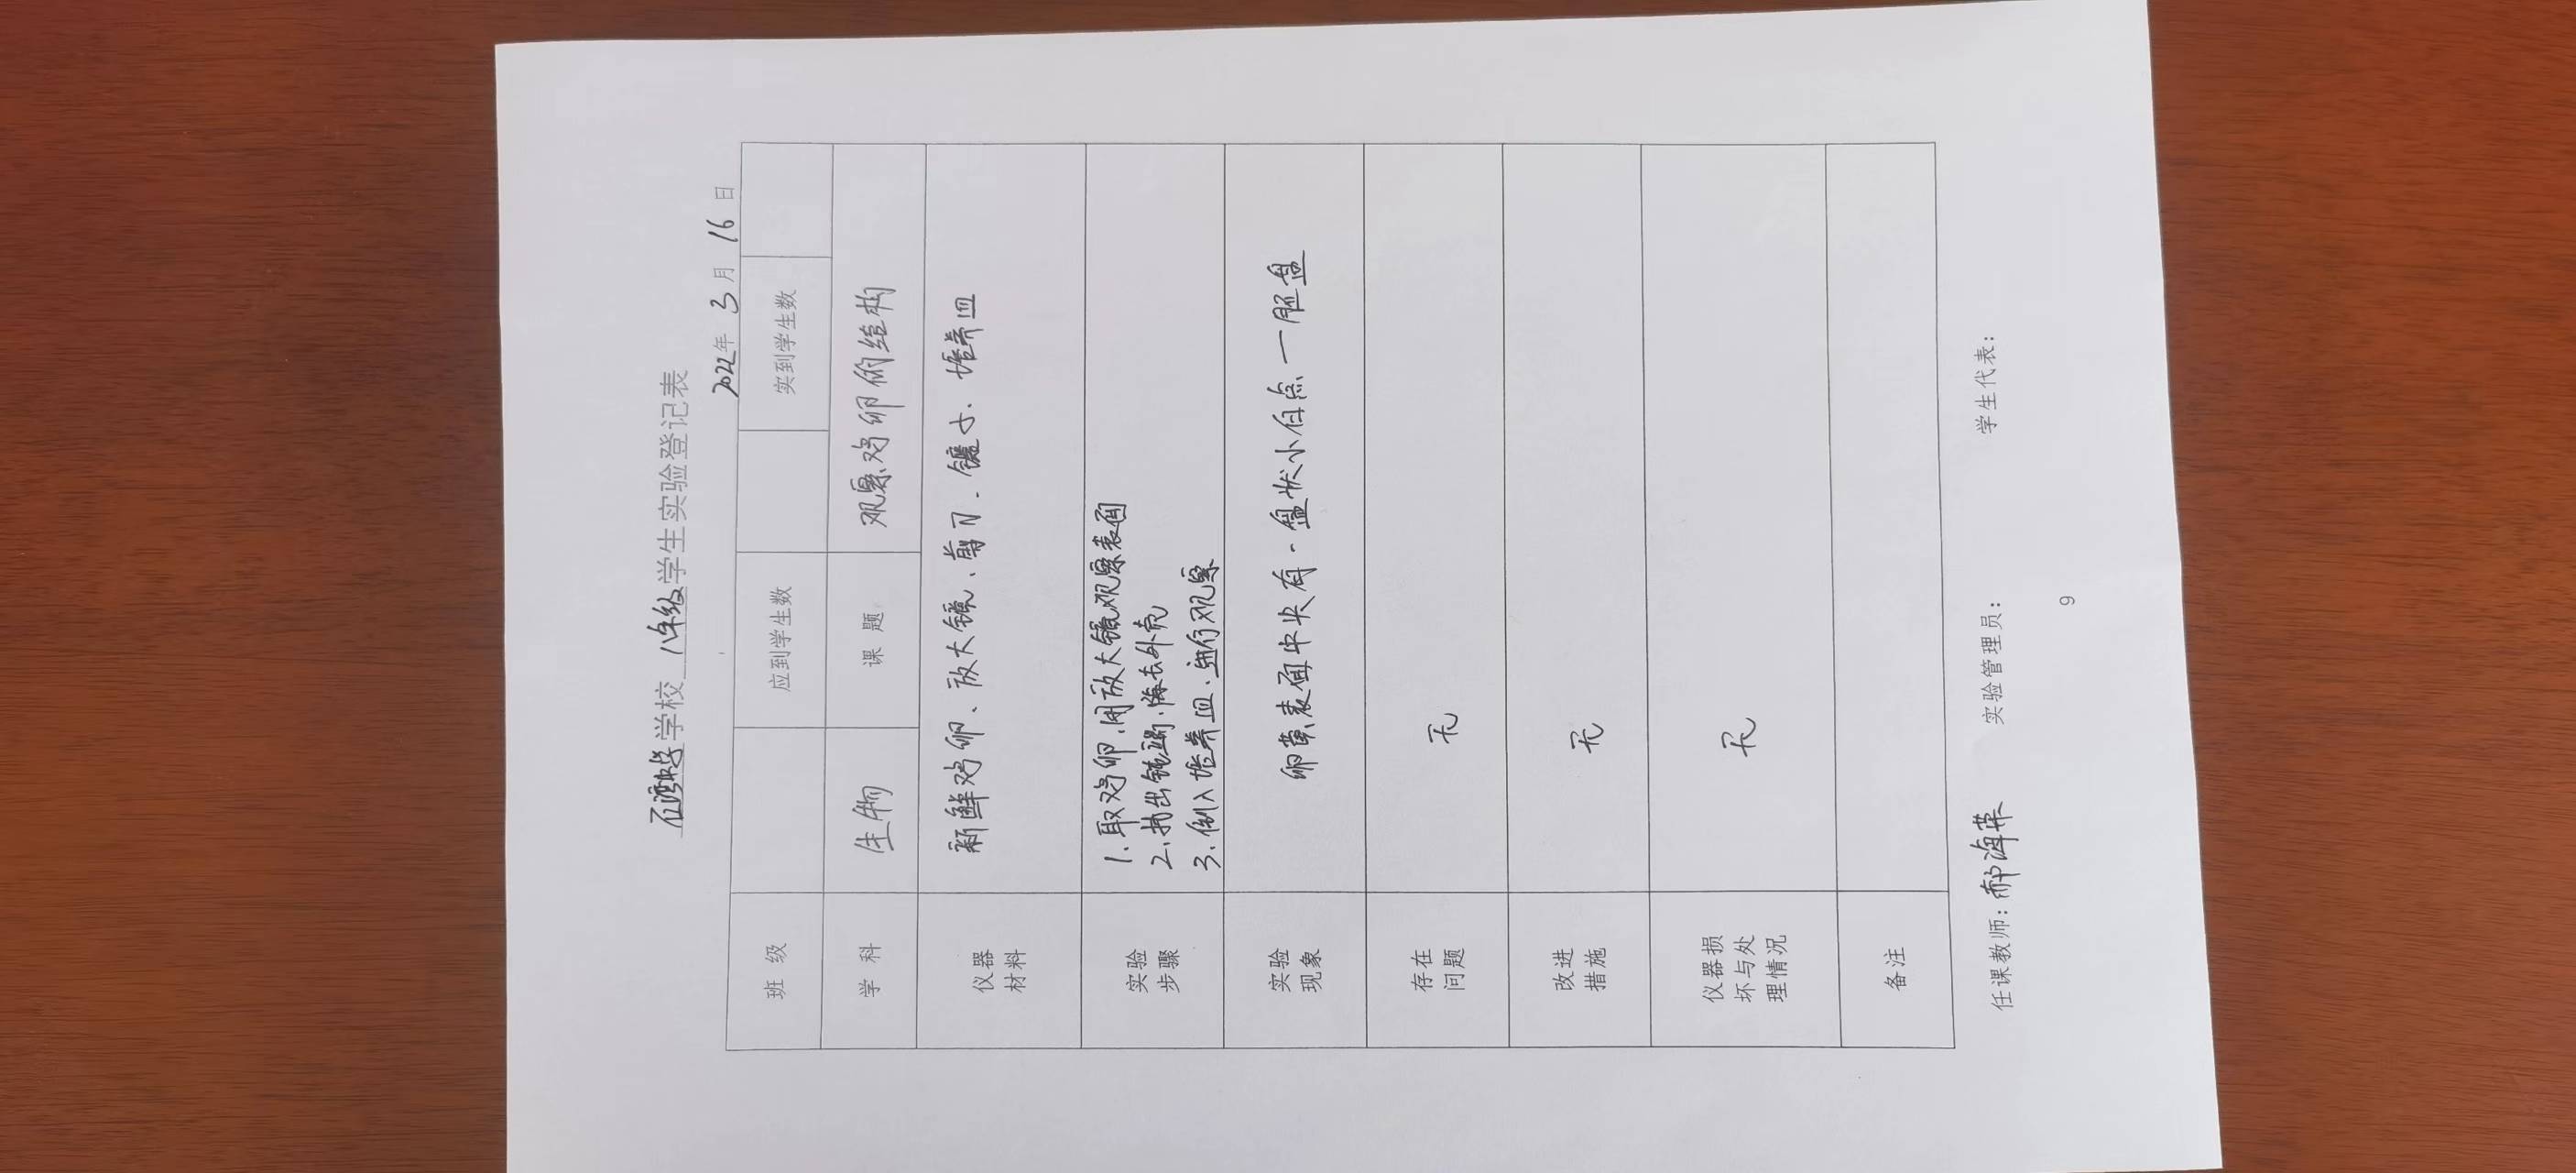 学校 八年级 学生实验登记表
2022年 3月 16日
班 级 应到学生数 实到学生数
学 科 生物 课 题 观察鸡卵的结构
仪器
材料
新鲜鸡卵、放大镜、剪刀、镊子、培养皿
实验
步骤
1.取鸡卵,用放大镜观察表面
2.找出钝端,除去外壳
3.倒入培养皿,进行观察
实验
现象
卵黄表面中央有一盘状小白点—胚盘
存在
问题
无
改进
措施
无
仪器损
坏与处
理情况
无
备注
任课教师: 郝海荣 实验管理员: 学生代表:
9